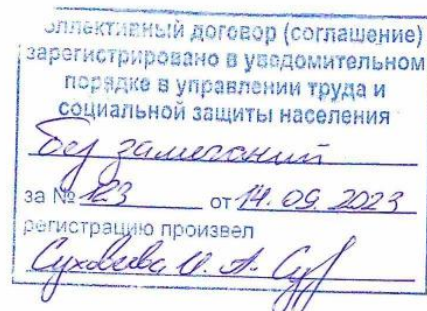 Коллективный договор (соглашение)
зарегистрировано в уведомительном
порядке в управлении труда и
социальной защиты населения
без замечаний
за № 123 от 14.09.2023
регистрацию произвел
И. А.